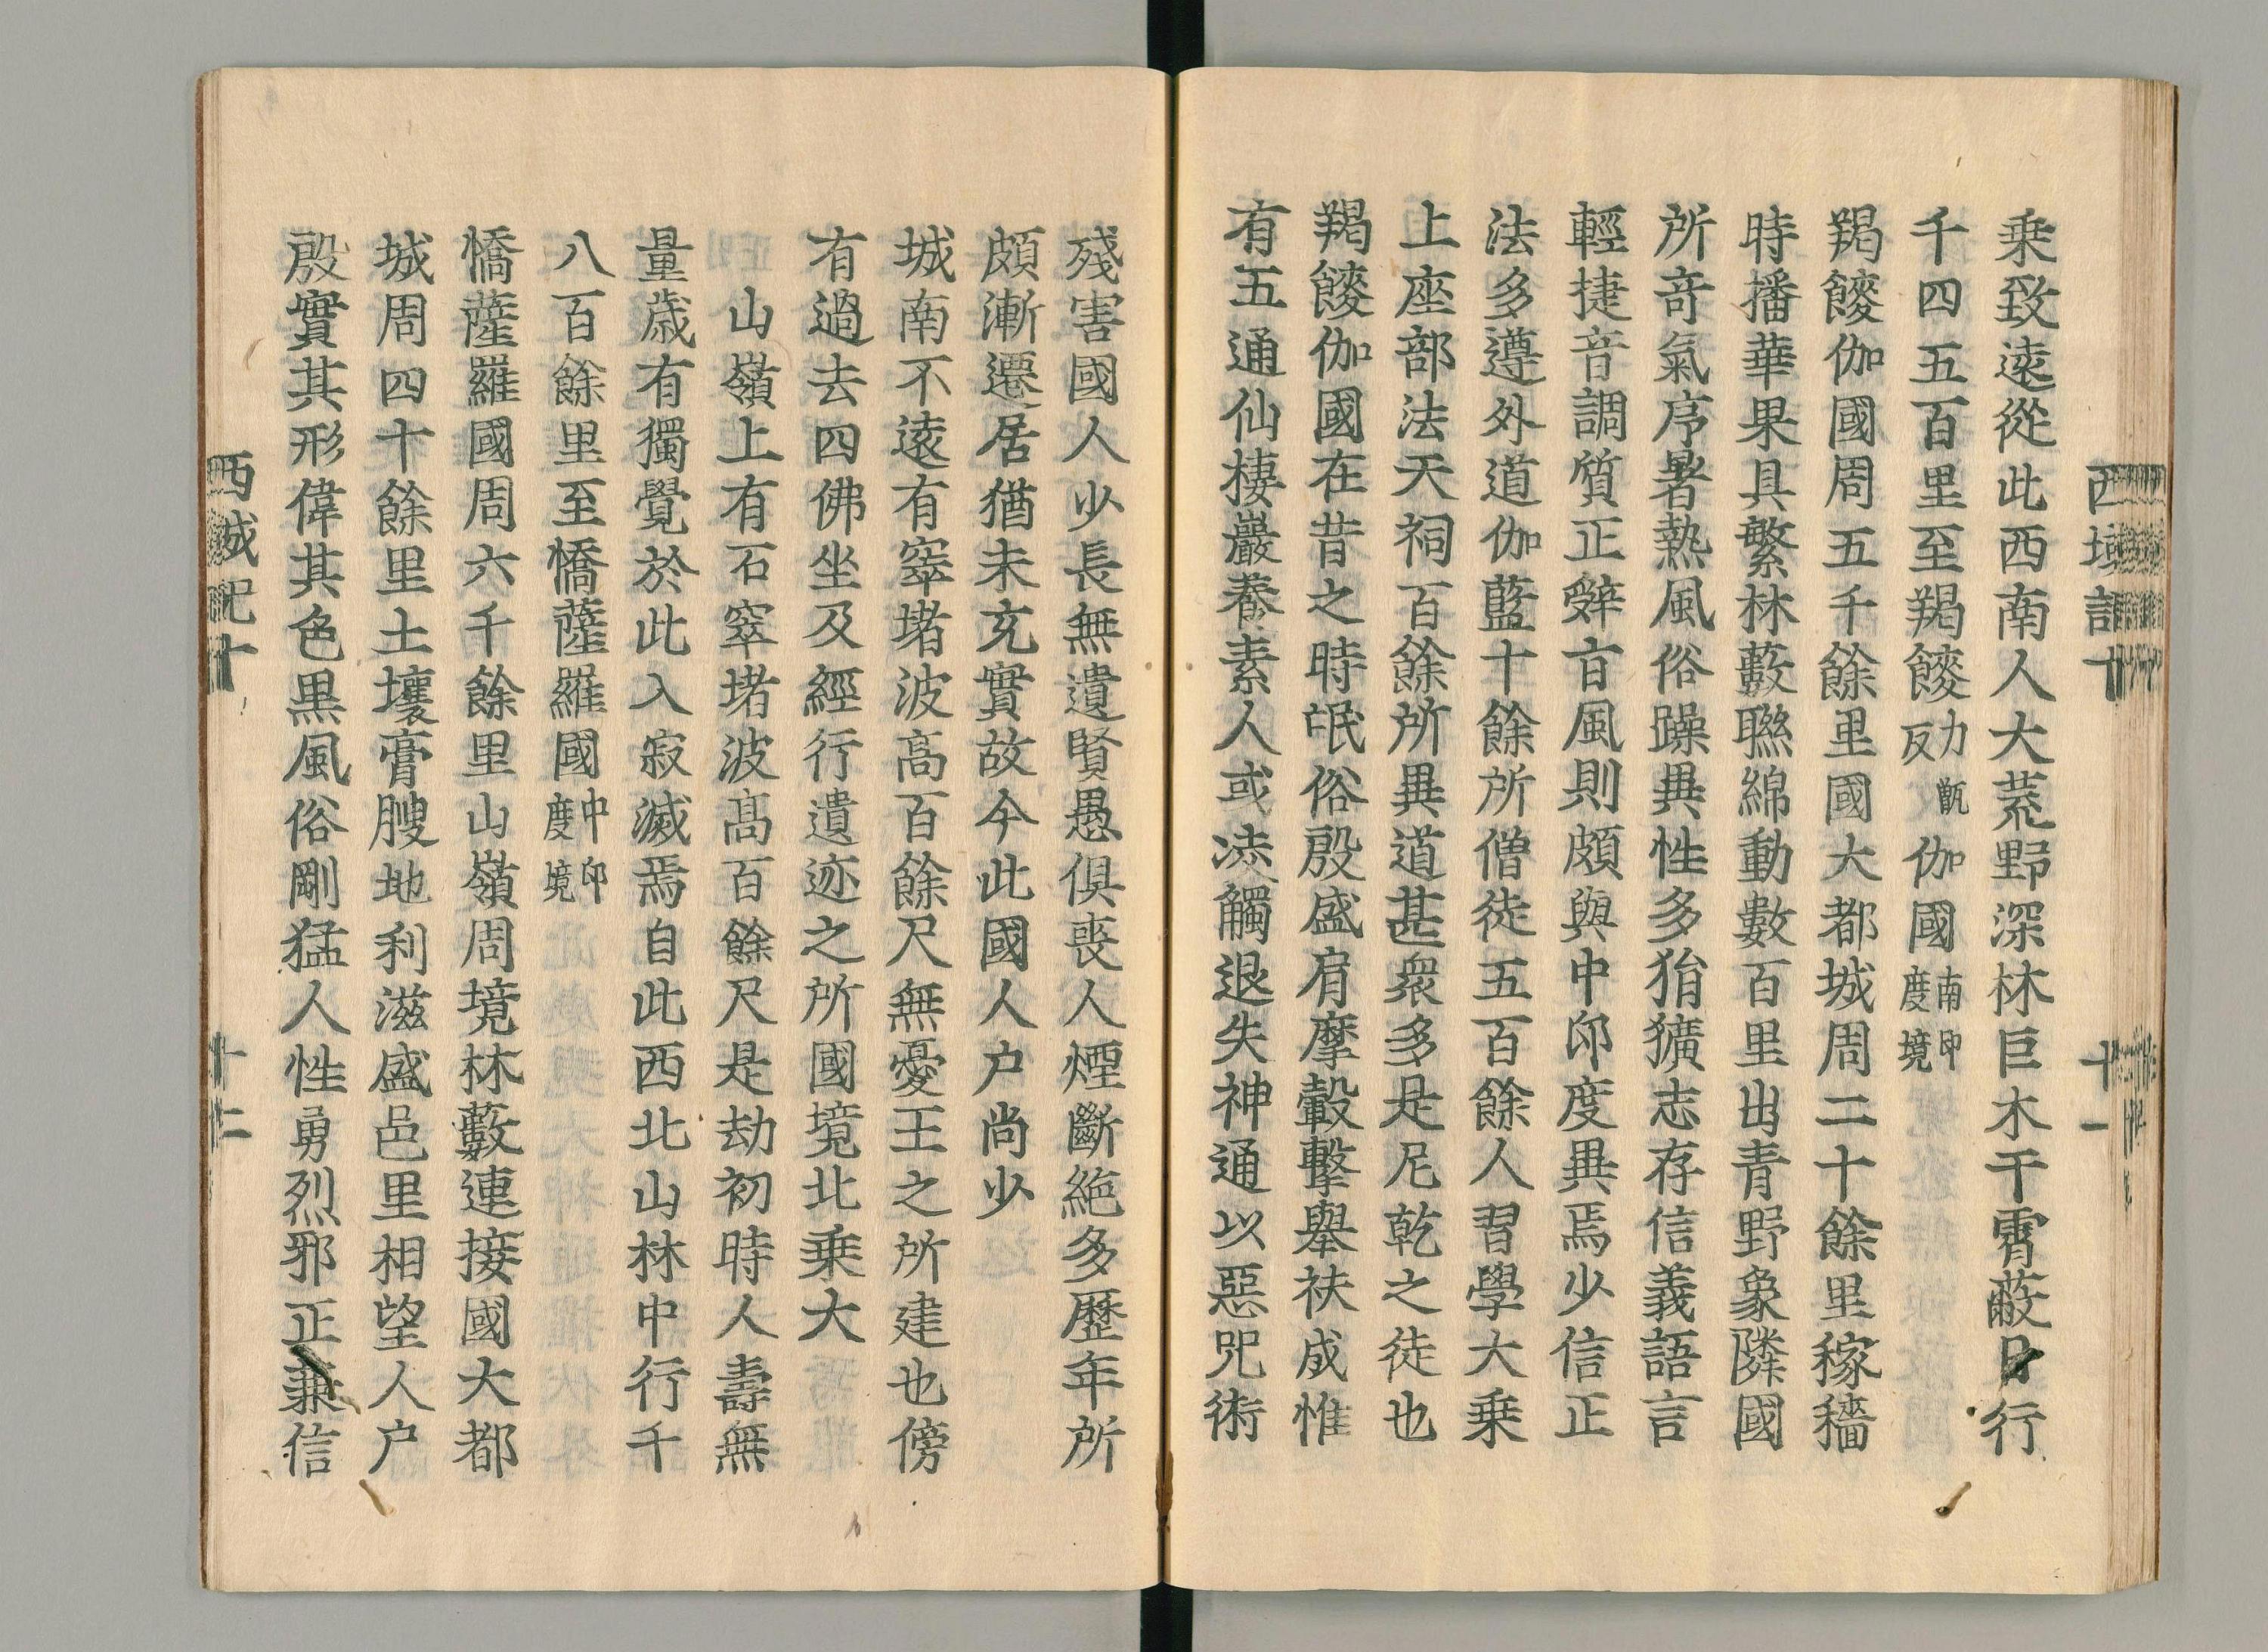 西域記十　十一
乘致遠從此西南人大荒野深林巨木干霄蔽日行
千四五百里至羯餕力甑反伽國南印度境
羯餕伽國周五千餘里國大都城周二十餘里稼穡
時播華果具繁林藪聯綿動數百里出青野象隣國
所竒氣序暑熱風俗躁異性多狷獷志存信義語言
輕捷音調質正辤㫖風則頗與中印度異焉少信正
法多遵外道伽藍十餘所僧徒五百餘人習學大乗
上座部法天祠百餘所異道甚衆多是尼乾之徒也
羯餕伽國在昔之時氓俗殷盛肩摩轂擊舉袂成惟
有五通仙棲巖養素人或凌觸退失神通以惡咒術
殘害國人少長無遺賢愚俱喪人煙斷絶多歷年所
頗漸遷居猶未充實故今此國人户尚少
城南不遠有窣堵波髙百餘尺無憂王之所建也傍
有過去四佛坐及經行遺迹之所國境北乗大
山嶺上有石窣堵波髙百餘尺是劫初時人壽無
量歲有獨覺於此入寂滅焉自此西北山林中行千
八百餘里至憍薩羅國中印度境
憍薩羅國周六千餘里山嶺周境林藪連接國大都
城周四十餘里土壤膏腴地利滋盛邑里相望人户
殷實其形偉其色黒風俗剛猛人性勇烈邪正兼信
西域記十　十二